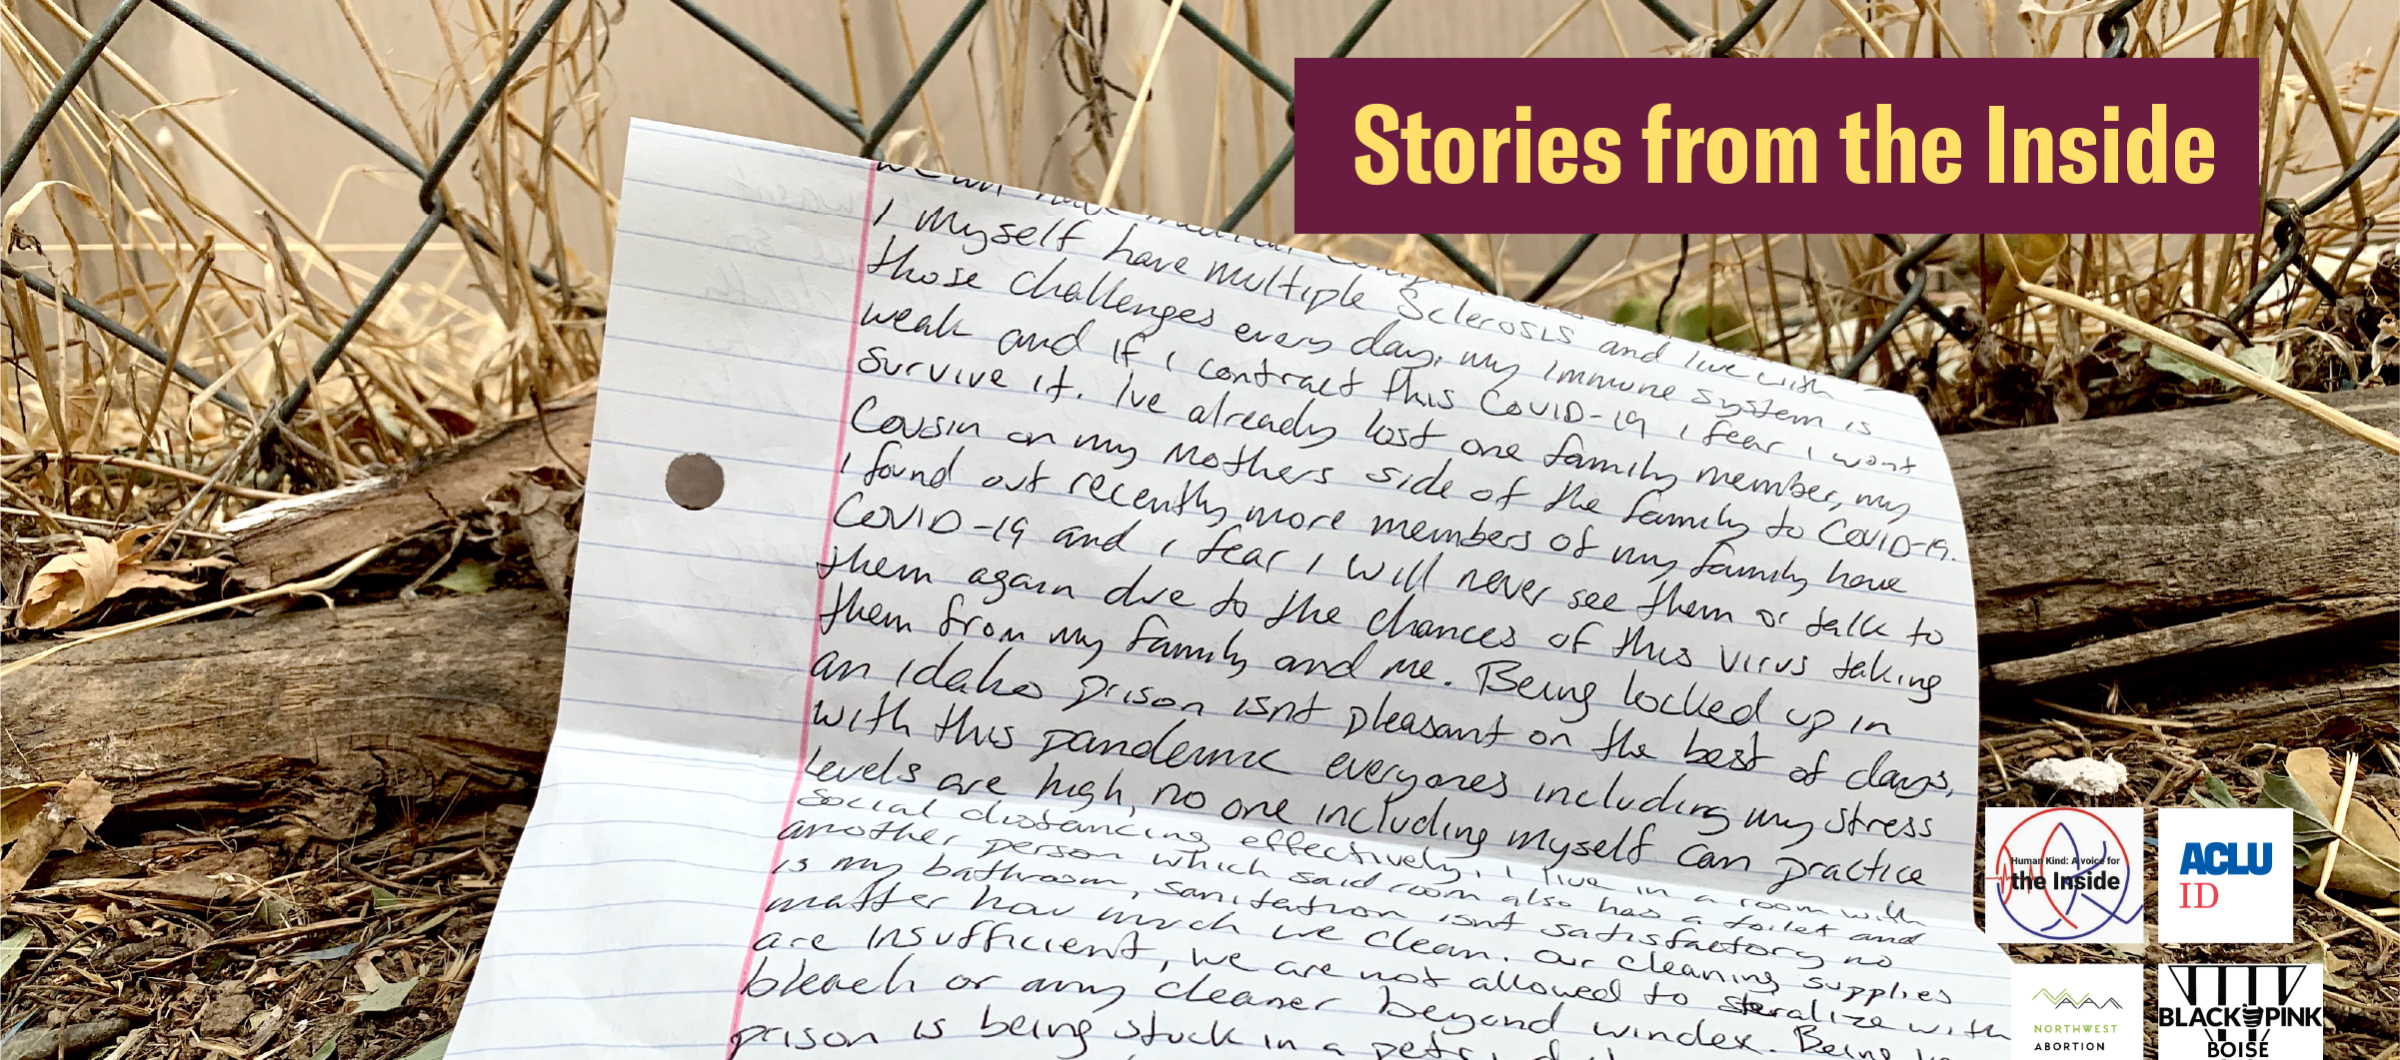 Stories from the Inside
we all have medical
I myself have multiple Sclerosis and live with
those challenges every day, my immune system is
weak and if i contract this COVID-19 i fear i wont
survive it. Ive already lost one family member, my
Cousin on my Mothers side of the family to COVID-19.
I found out recently more members of my family have
COVID-19 and i fear I will never see them or talk to
them again due to the chances of this virus taking
them from my family and me. Being locked up in
an idaho prison isnt pleasant on the best of days,
with this pandemic everyones including my stress
levels are high, no one including myself can practice
social distancing effectively, i live in a room with
another person which said room also has a toilet and
is my bathroom, sanitation isnt satisfactory no
matter how much we clean. Our cleaning supplies
are insufficient, we are not allowed to steralize with
bleach or any cleaner beyond windex. Being
prison is being stuck in a petri
Human Kind: A voice for
the Inside
ACLU
ID
NORTHWEST
ABORTION
BLACK PINK
BOISE